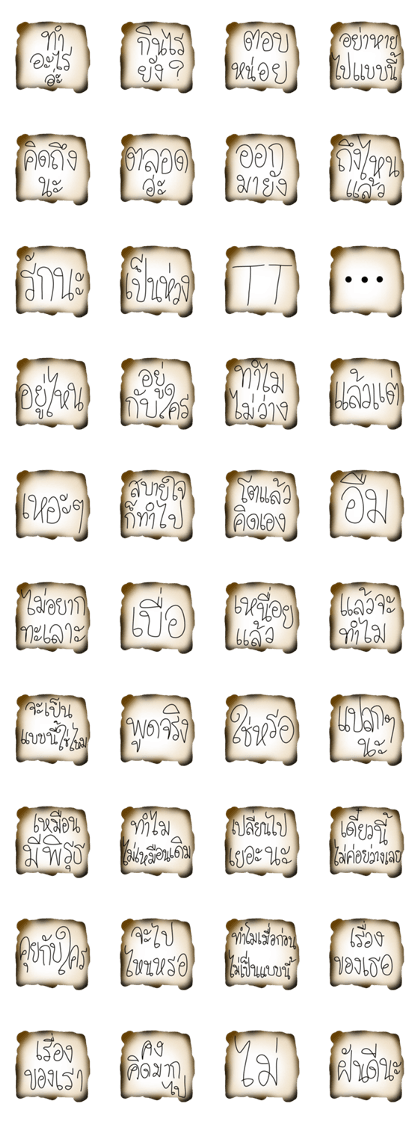 ทำ
อะไร
อ่ะ
กินไร
ยัง?
ตอบ
หน่อย
อย่าหาย
ไปแบบนี้
คิดถึง
นะ
ตลอด
อ่ะ
ออก
มายัง
ถึงไหน
แล้ว
รักนะ
เป็นห่วง
TT
...
อยู่ไหน
อยู่
กับใคร
ทำไม
ไม่ว่าง
แล้วแต่
เหอะๆ
สบายใจ
ก็ทำไป
โตแล้ว
คิดเอง
อืม
ไม่อยาก
ทะเลาะ
เบื่อ
เหนื่อย
แล้ว
แล้วจะ
ทำไม
จะเป็น
แบบนี้ใช่ไหม
พูดจริง
ใช่หรือ
แปลกๆ
นะ
เหมือน
มีพิรุธ
ทำไม
ไม่เหมือนเดิม
เปลี่ยนไป
เยอะนะ
เดี๋ยวนี้
ไม่ค่อยว่างเลย
คุยกับใคร
จะไป
ไหนหรอ
ทำไมเมื่อก่อน
ไม่เป็นแบบนี้
เรื่อง
ของเธอ
เรื่อง
ของเรา
คง
คิดมาก
ไป
ไม่
ฝันดีนะ